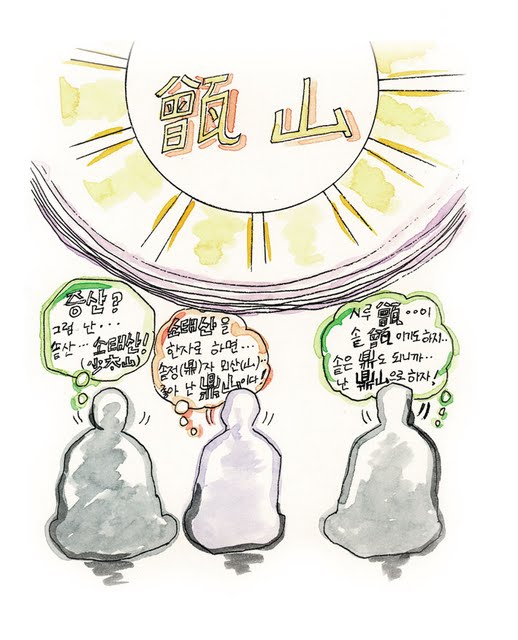 甑山
증산?
그럼 난···
솥산··· 소태산!
(少太山)
소태산을
한자로 하면···
솥정(鼎)자 뫼산(山)··
좋아 난 鼎山이다!
시루 甑···이
솥 甑이기도 하지··
솥은 鼎도 되니까···
난 鼎山으로 하자!